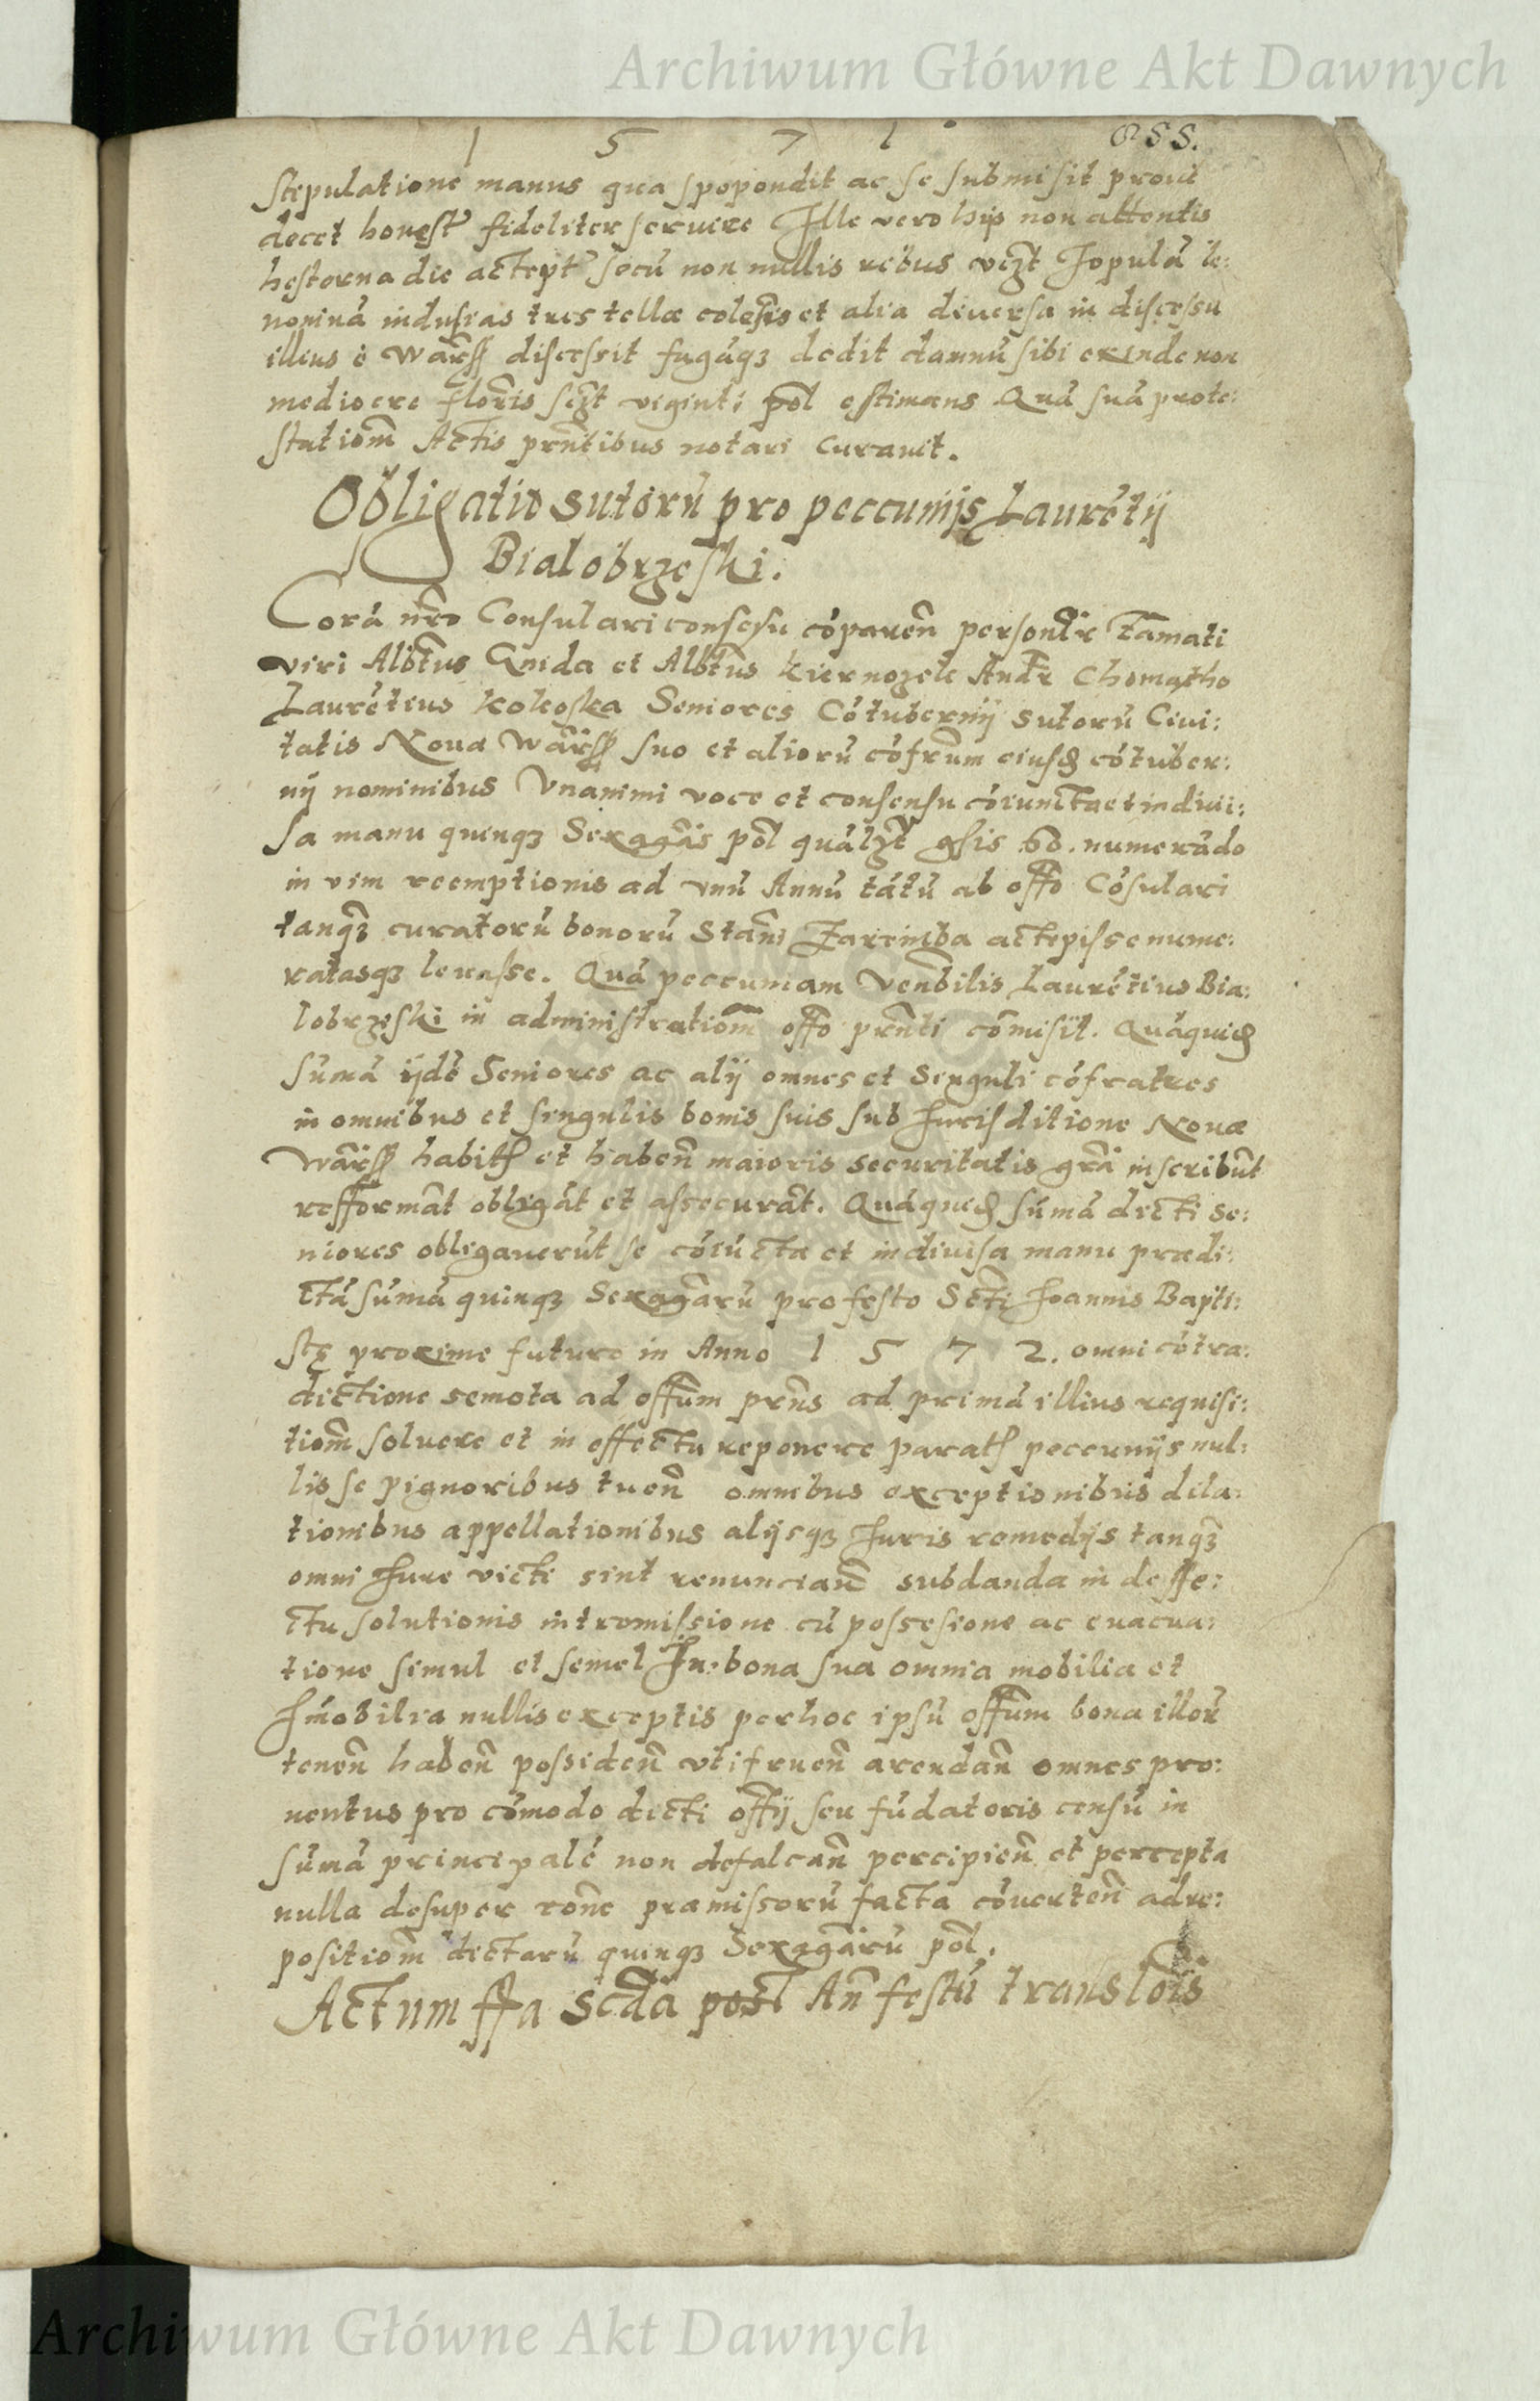 Archiwum Główne Akt Dawnych
1 5 7 1
stipulatione manus qua spopondit ac se submisit prout
decet honest fideliter seruire Ille vero hijs non attentis
hesterna die accept secū non nullis rebus vczt Iopulā le:
noninā indusias tres tellæ et alia diuersa in discessu
illius è Wārss discessit fugāqz dedit damnū sibi exinde non
mediocre flōris sczt viginti pōl estimans Quā suā prote:
statiōm Actis prn̄tibus notari curauit.
Obligatio sutorū pro peccunijs Laurētij
Bialobrzeski.
Corā nr̄o Consulari consessu cōparen̄ personlr famati
viri Albt̄us Gnida et Albt̄us Kiernozek Andr Chomątho
Laurētius Kokoska Seniores Cōtubernij sutorū Ciui:
tatis Noua Wārss suo et aliorū cōfrum eiusd cōtuber:
nij nominibus Vnanimi voce et consensu cōiuncta et indiui:
sa manu quinqz Sexagās pōl quālzt gsis 60. numerādo
in vim reemptionis ad vnū Annū tātū ab offo Cōsulari
tanqz curatorū bonorū Stan̄i Zaremba accepisse nume:
ratasqz leuasse. Quā peccuniam Venbilis Laurētius Bia:
lobrzeski in administratiōm offo prn̄ti cōmisit. Quāquid
sūmā ijdē Seniores ac alij omnes et Singuli cōfratres
in omnibus et singulis bonis suis sub Iurisditione Nouæ
Wārss habit et haben̄ maioris securitatis grā inscribūt
refformāt obligāt et assecurāt. Quāquid sūmā dicti Se:
niores obligauerūt se cōiūcta et indiuisa manu prædi:
ctā sūmā quinqz Sexagārū pro festo Scti Ioannis Bapti:
stę proxime futuro in Anno 1 5 7 2. omni cōtra:
dictione semota ad offum prn̄s ad primā illius requisi:
tiōm soluere et in effectu reponere parat peccunijs nul:
lis se pignoribus tuen̄ omnibus exceptionibus dila:
tionibus appellationibus alijsqz Iuris remedijs tanqz
omni Iure victi sint renuncian̄ subdanda in deffe:
ctu solutionis intromissione cū possesione ac euacua:
tione simul et semel In bona sua omnia mobilia et
Imobilia nullis exceptis per hoc ipsū offum bona illorū
tenen̄ haben̄ possiden̄ vtifruen̄ arendan̄ omnes pro:
uentus pro cōmodo dicti offij seu fūdatoris censū in
sūmā principalē non defalcan̄ percipien̄ et percepta
nulla desuper rōne præmissorū facta cōuerten̄ ad re:
positiōm dictarū quinqz Sexagārū pōl.
Actum ffa scd̄a post An̄ festū translōis
Archiwum Główne Akt Dawnych